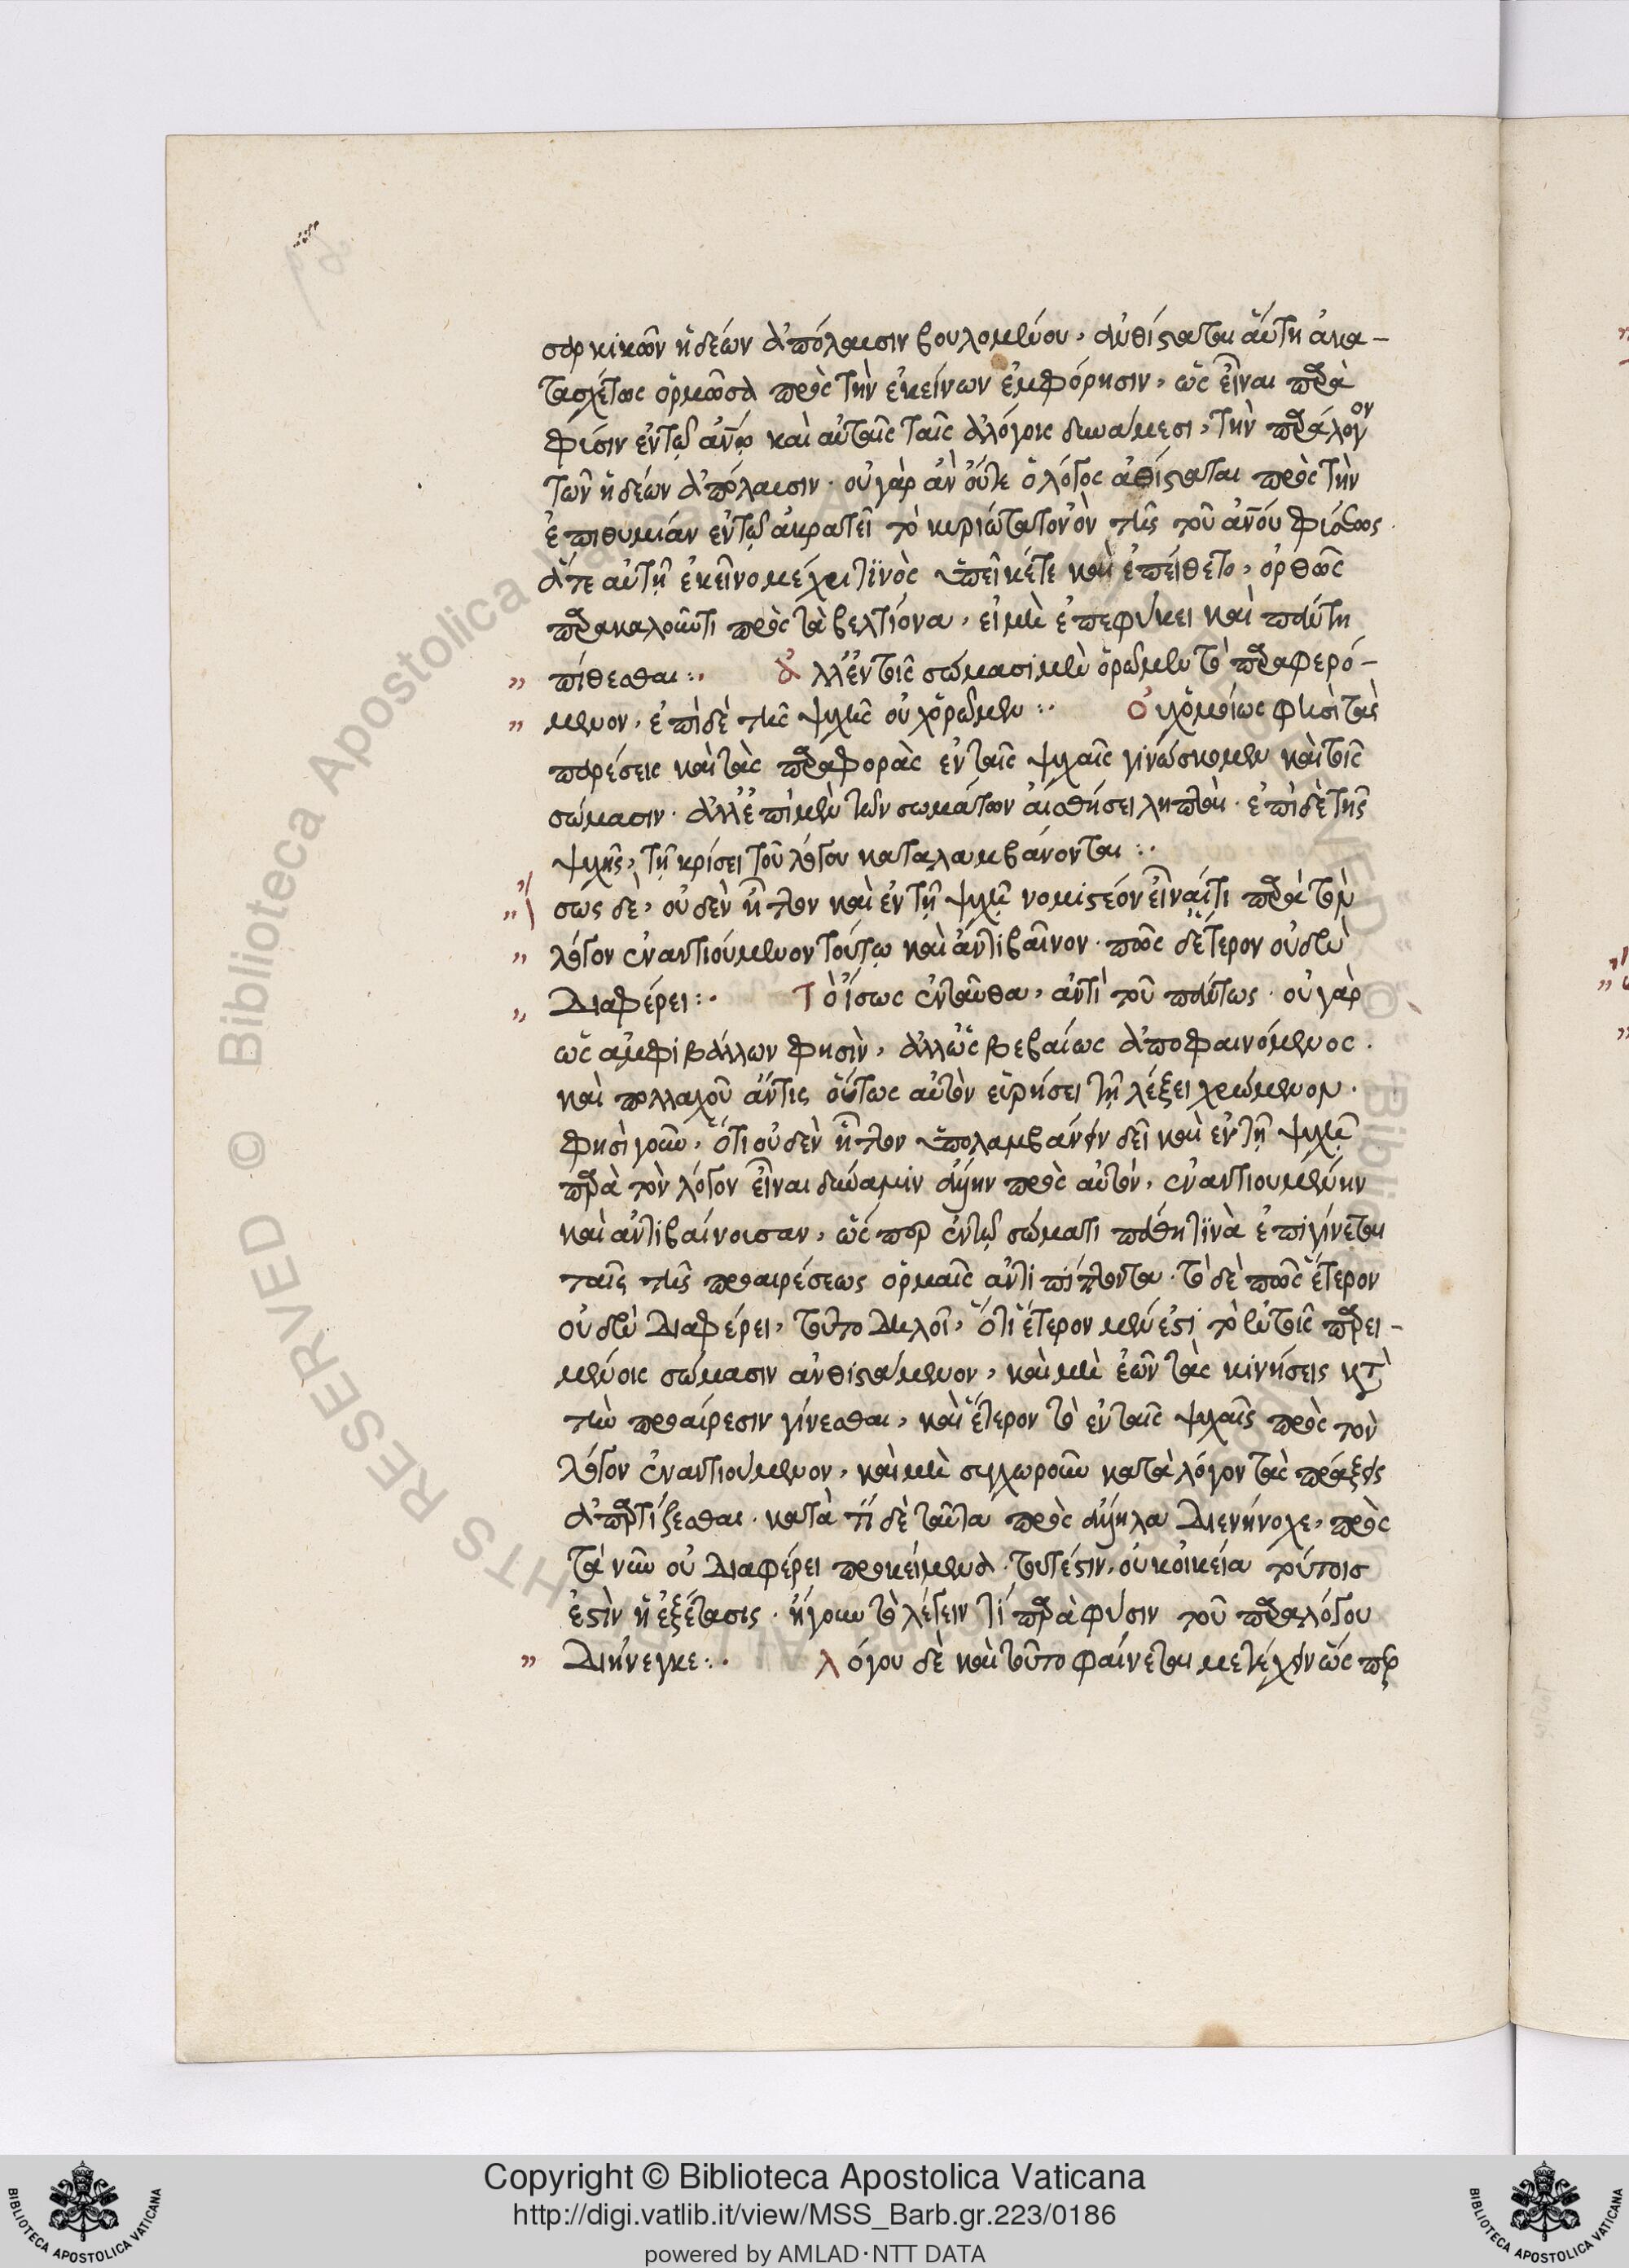 σαρκικῶν ἡδέων ἀπόλαυσιν βουλομένου, ἀνθίσταται αὕτη ἀκα-
τασχέτως ὁρμῶσα πρὸς τὴν ἐκείνων ἐμφόρησιν, ὡς εἶναι παρὰ
φύσιν ἐν τῶ ἀν͞ω καὶ αὐταῖς ταῖς ἀλόγοις δυνάμεσι, τὴν παράλογον
τῶν ἡδέων ἀπόλαυσιν. οὐ γὰρ ἂν οὔτε ὁ λόγος ἀθίσταται πρὸς τὴν
ἐπιθυμίαν ἐν τῶ ἀκρατεῖ τὸ κυριώτατον ὂν τῆς τοῦ ἀν͞ου φύσεως.
οὔτε αὐτῆ ἐκείνο μέχρι τϊνὸς ὑπεῖκέ τε καὶ ἐπείθετο, ὀρθῶς
παρακαλοῦντι πρὸς τὰ βελτίονα, εἰ μὴ ἐπεφύκει καὶ πάντη
„ πίθεσθαι :. ἀλλ' ἐν τοῖς σώμασι μὲν ὁρῶμεν τὸ παραφερό-
„ μενον, ἐπὶ δὲ τῆς ψυχῆς οὐχ ὁρῶμεν :. Οὐχ ὁμοίως φησὶ τὰς
παρέσεις καὶ τὰς παραφορὰς ἐν ταῖς ψυχαῖς γινώσκομεν καὶ τοῖς
σώμασιν. ἀλλ' ἐπὶ μὲν τῶν σωμάτων αἰσθήσει ληπταί. ἐπὶ δὲ τῆς
ψυχῆς, τῆ κρίσει τοῦ λόγου καταλαμβάνονται :.
„ Ἴσως δὲ, οὐδὲν ἧττον καὶ ἐν τῆ ψυχῆ νομιστέον εἶναί τι παρὰ τὸν
„ λόγον ἐναντιούμενον τούτω καὶ ἀντιβαῖνον. πῶς δ' ἕτερον οὐδὲν
„ διαφέρει :. Τὸ ἴσως ἐνταῦθα, ἀντὶ τοῦ πάντως. οὐ γὰρ
ὡς ἀμφιβάλλων φησὶν, ἀλλ' ὡς βεβαίως ἀποφαινόμενος.
καὶ πολλαχοῦ ἄντις οὕτως αὐτὸν εὑρήσει τῆ λέξει χρώμενον.
φησὶ γοῦν, ὅτι οὐδὲν ἧττον ὑπολαμβάνειν δεῖ καὶ ἐν τῆ ψυχῆ
παρὰ τὸν λόγον εἶναι δύναμιν ἄλλην πρὸς αὐτὸν, ἐναντιουμένην
καὶ ἀντιβαίνουσαν, ὥσπερ ἐν τῶ σώματι πάθη τϊνὰ ἐπιγίνεται
ταῖς τῆς προαιρέσεως ὁρμαῖς ἀντιπίπτοντα. τὸ δὲ πῶς ἕτερον
οὐδὲν διαφέρει, τοῦτο δηλοῖ, ὅτι ἕτερον μέν ἐστι τὸ ἐν τοῖς παρει-
μένοις σώμασιν ἀνθιστάμενον, καὶ μὴ ἐῶν τὰς κινήσεις κατὰ
τὴν προαίρεσιν γίνεσθαι, καὶ ἕτερον τὸ ἐν ταῖς ψυχαῖς πρὸς τὸν
λόγον ἐναντιούμενον, καὶ μὴ συγχωροῦν κατὰ λόγον τὰς πράξεις
ἀπαρτίζεσθαι. κατὰ τί δὲ ταῦτα πρὸς ἄλληλα διενήνοχε, πρὸς
τὰ νῦν οὐ διαφέρει προκείμενα. τουτέστιν, οὐκ οἰκεία τούτοις
ἐστὶν ἡ ἐξέτασις. ἤγουν τὸ λέγειν τί παρὰ φύσιν τοῦ παραλόγου
„ διήνεγκε :. Λόγου δὲ καὶ τοῦτο φαίνεται μετέχειν ὥσπερ